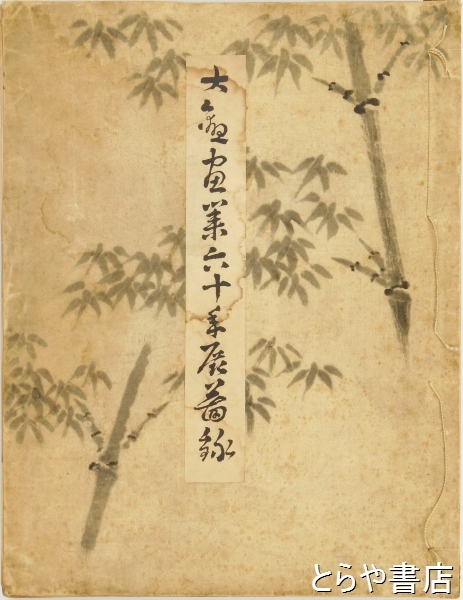 大觀画業六十年展圖録
とらや書店